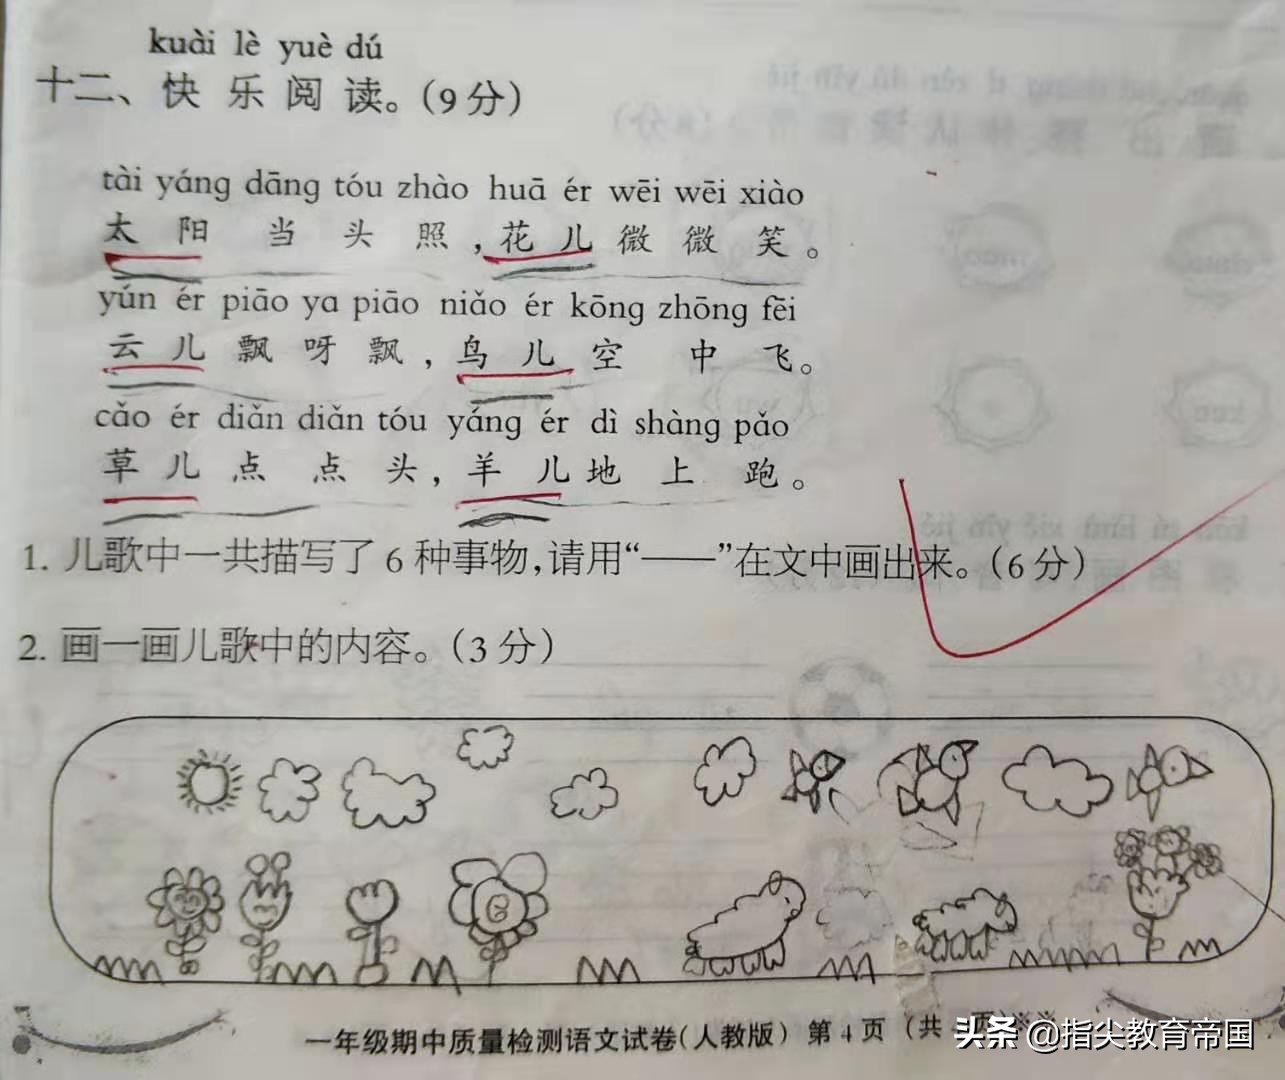 kuài lè yuè dú
十二、快乐阅读。（9分）
tài yáng dāng tóu zhào huā ér wēi wēi xiào
太阳当头照，花儿微微笑。
yún ér piāo ya piāo niǎo ér kōng zhōng fēi
云儿飘呀飘，鸟儿空中飞。
cǎo ér diǎn diǎn tóu yáng ér dì shàng pǎo
草儿点点头，羊儿地上跑。
1. 儿歌中一共描写了6种事物，请用“——”在文中画出来。（6分）
2. 画一画儿歌中的内容。（3分）
一年级期中质量检测语文试卷（人教版）第4页（共
头条 @指尖教育帝国